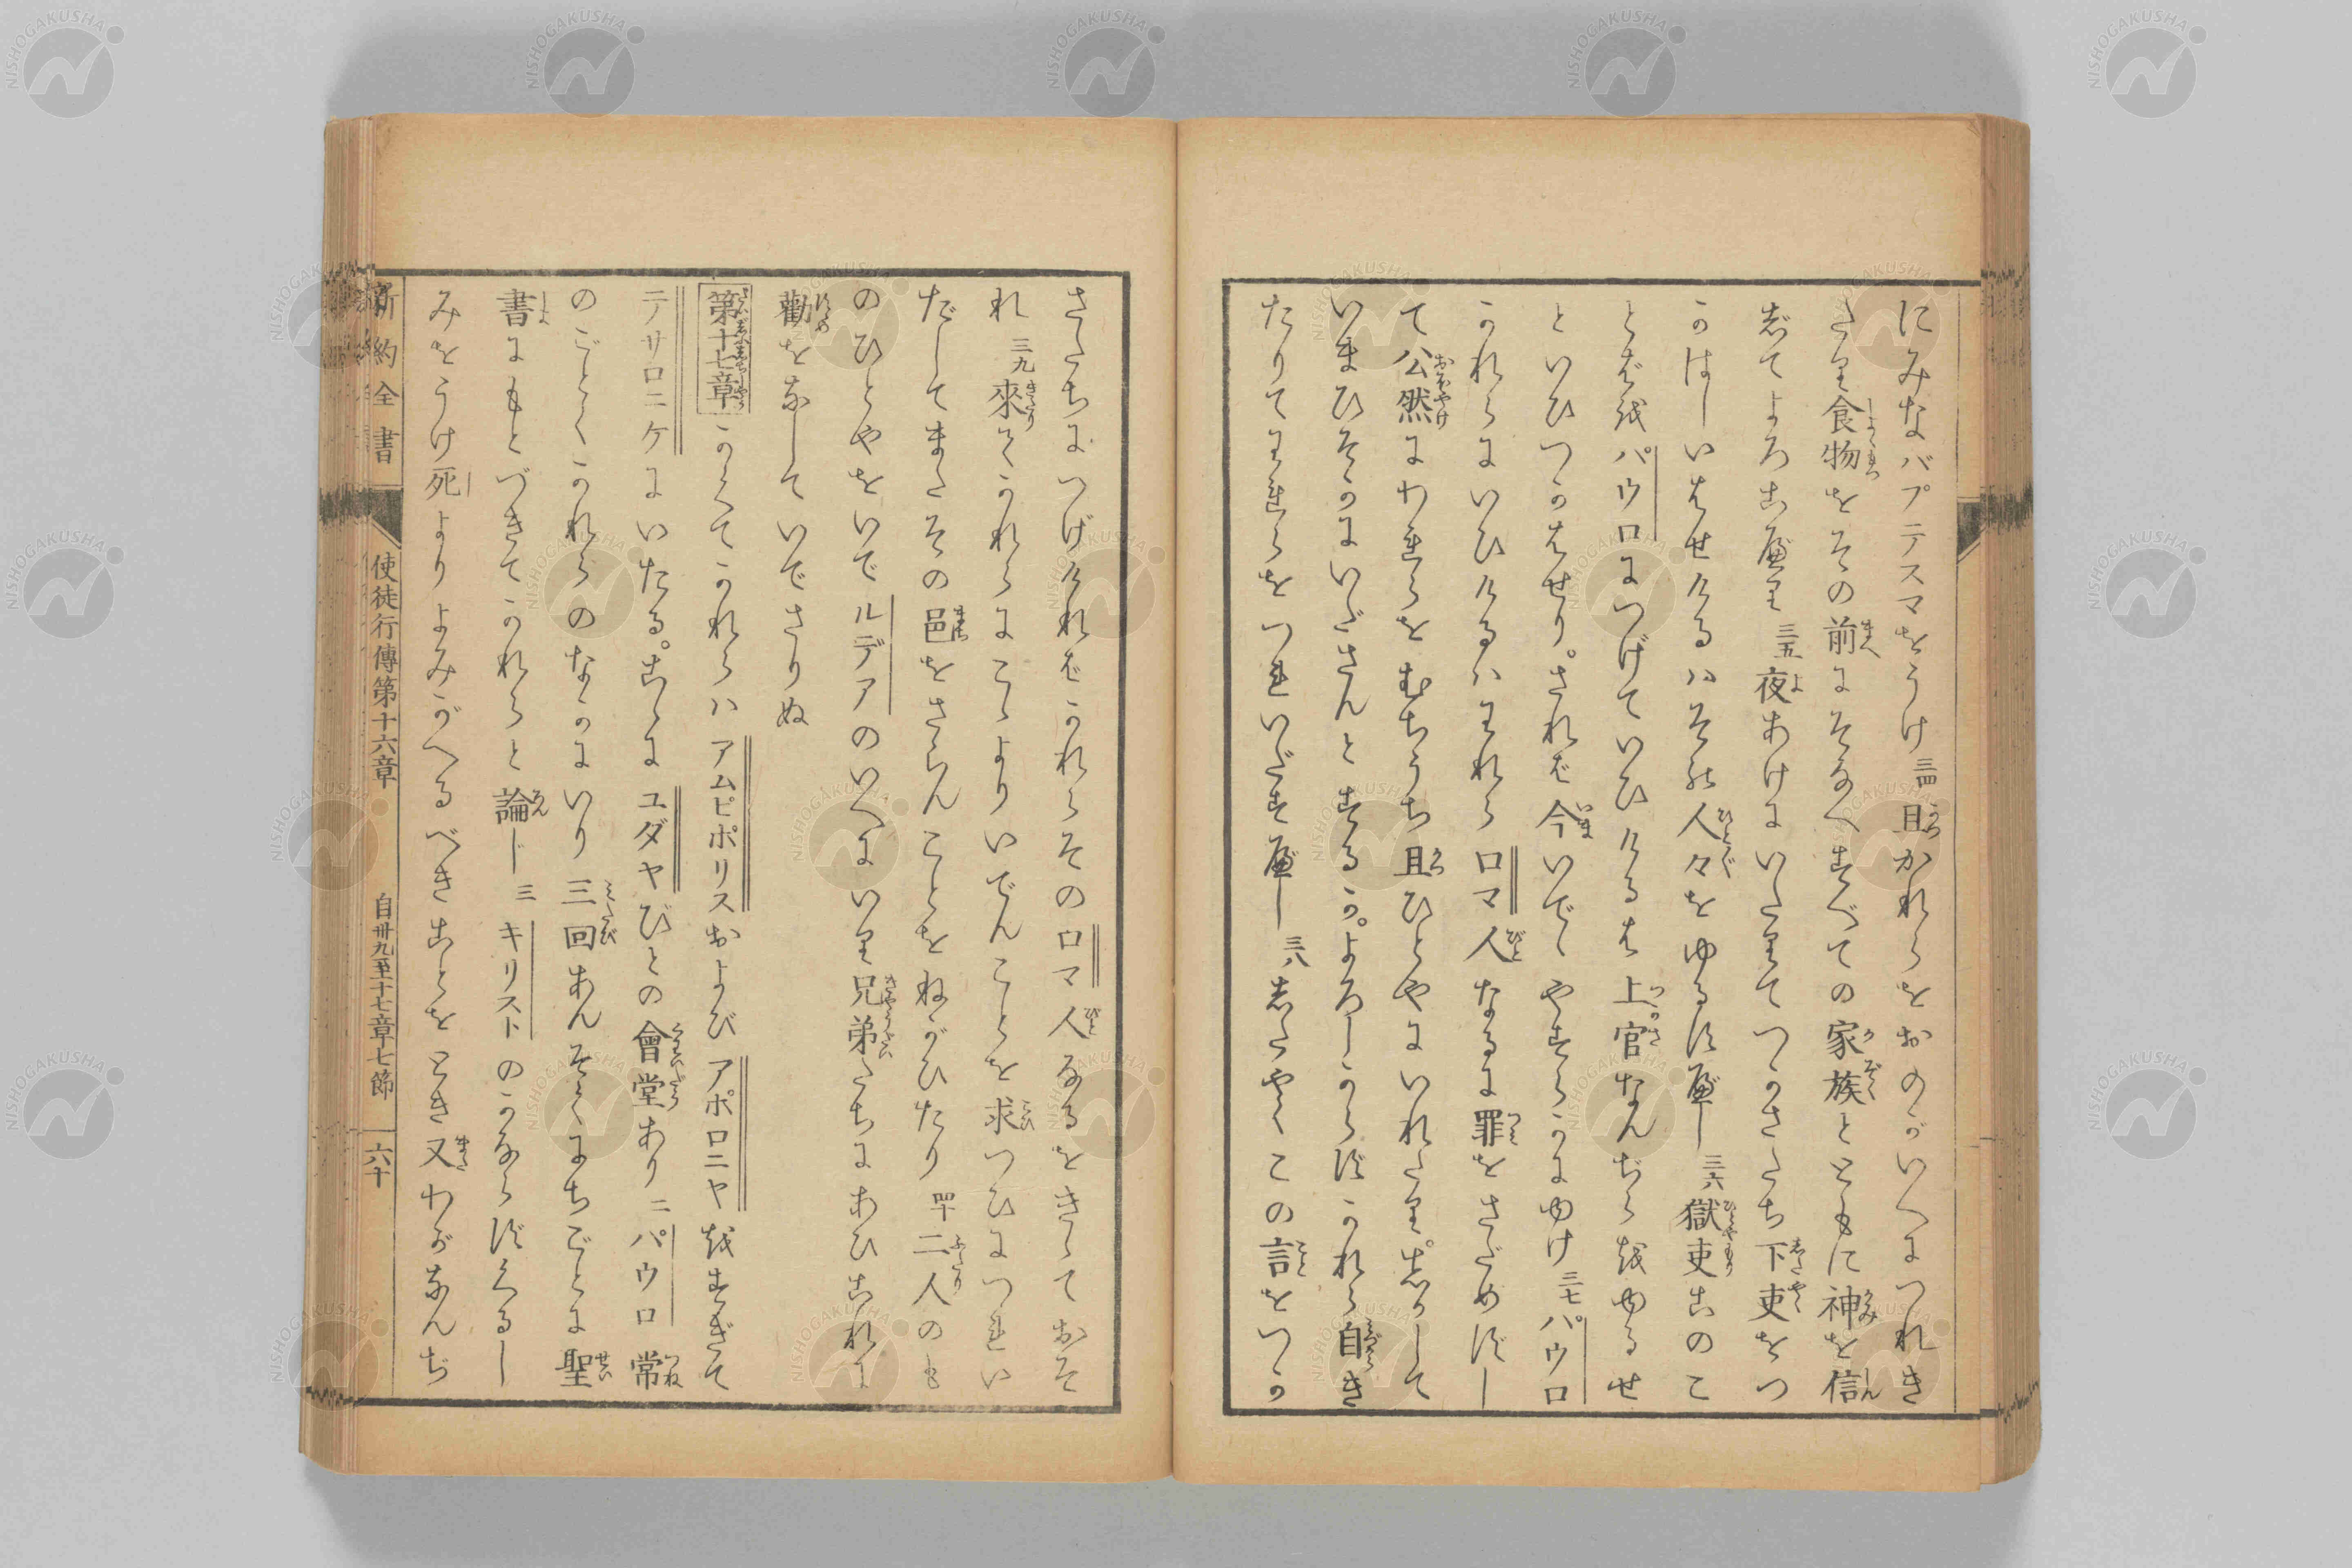 にみなバプテスマをうけ 三四 且かれらをおのがいへにつれき
たり食物をその前にそなへすべての家族とともに神を信
じてよろこべり 三五 夜あけにいたりてつかさたち下吏をつ
かはしいはせけるハその人々をゆるすべし 三六 獄吏このこ
とばをパウロにつげていひけるは上官なんぢらをゆるせ
といひつかはせり。されば今いでゝやすらかにゆけ 三七 パウロ
かれらにいひけるハわれらロマ人なるに罪をさだめずし
て公然にわれらをむちうち且ひとやにいれたり。しかして
いまひそかにいださんとするか。よろしからずかれら自き
たりてわれらをつれいだすべし 三八 したやくこの言をつか
さたちにつげければかれらそのロマ人なるをきゝておそ
れ 三九 來てかれらにこゝよりいでんことを求つひにつれい
だしてまたその邑をさらんことをねがひたり 四十 二人のも
のひとやをいでルデアのいへにいり兄弟たちにあひこれに
勸をなしていでさりぬ
第十七章 かくてかれらハアムピポリスおよびアポロニヤをすぎて
テサロニケにいたる。こゝにユダヤびとの會堂あり 二 パウロ常
のごとくかれらのなかにいり三回あんそくにちごとに聖
書にもとづきてかれらと論じ 三 キリストのかならずくるし
みをうけ死よりよみがへるべきことをとき又わがなんぢ
新約全書 使徒行傳第十六章 自卅九至十七章七節 六十
NISHOGAKUSHA